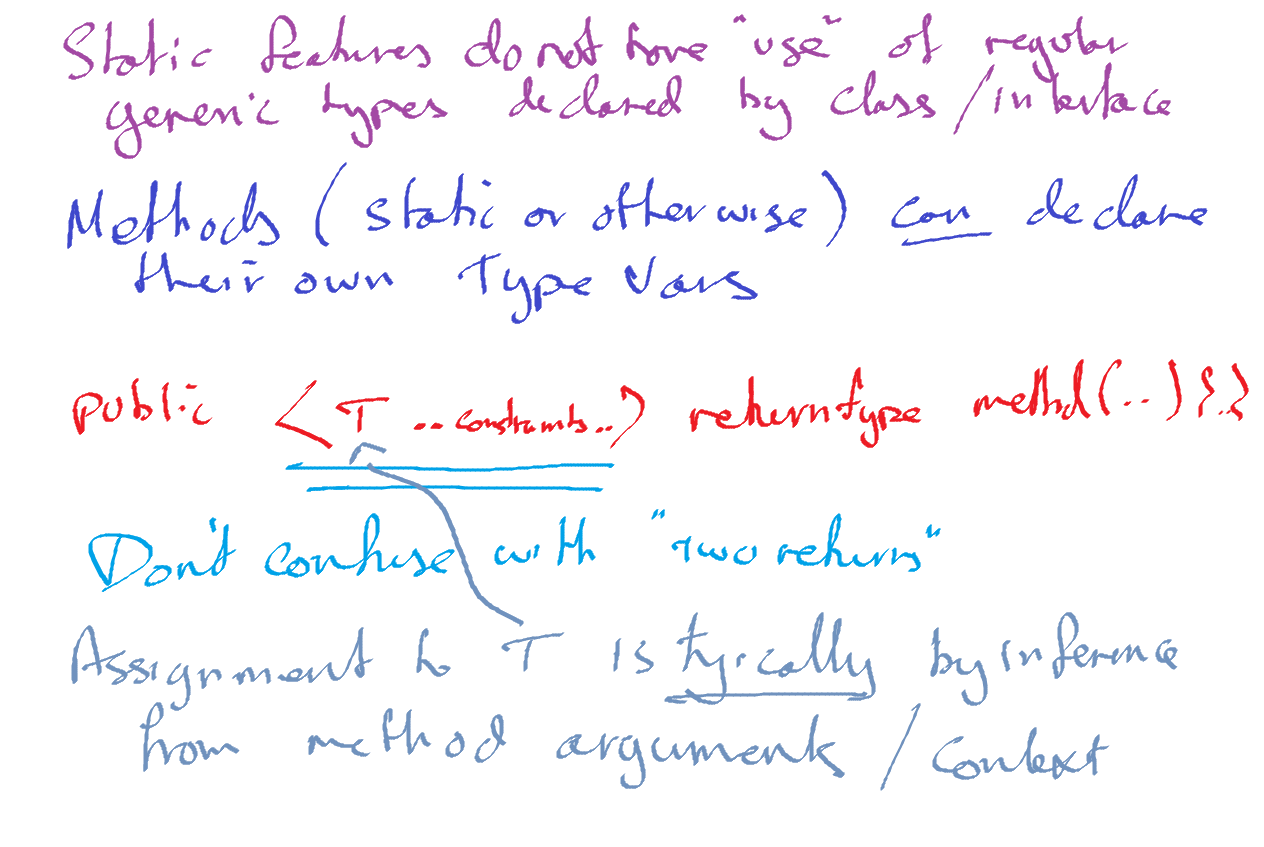 Static features do not have "use" of regular
generic types declared by class/interface
Methods (static or otherwise) can declare
their own Type Vars
public <T ..constraints..> returntype method(..){..}
Don't confuse with "two returns"
Assignment to T is typically by inference
from method arguments / context